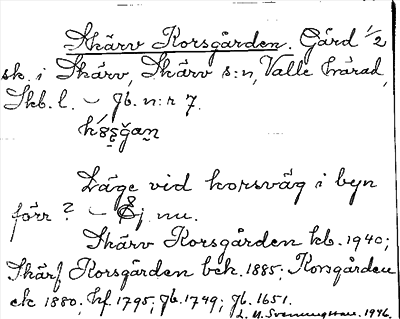 Skärv Korsgården. Gård 1/2
sk. i Skärv, Skärv s:n, Valle härad,
Skb. l. – Jb. n:r 7.
Läge vid korsväg i byn
förr? – Ej nu.
Skärv Korsgården kb. 1940;
Skärf Korsgården bek. 1885; Korsgården
ek 1880; hf 1795; Jb. 1749; Jb. 1651.
1946.